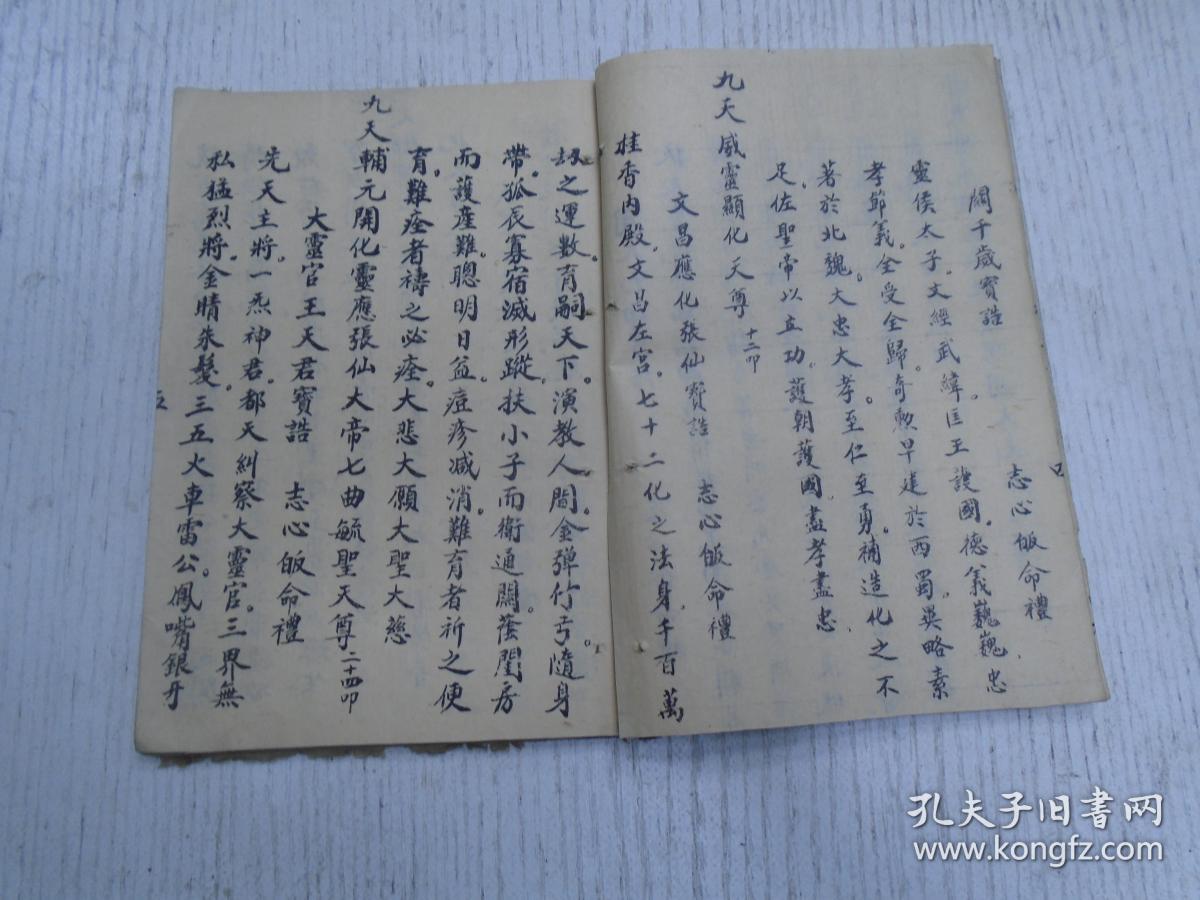 關千歲寶誥 志心皈命禮
靈侯太子文經武緯匡王護國德義巍巍忠
孝節義全受全歸奇勲早建於西蜀英略素
著於北魏大忠大孝至仁至勇補造化之不
足佐聖帝以立功護朝護國盡孝盡忠
九天威靈顯化天尊十二叩
文昌應化張仙寶誥 志心皈命禮
桂香內殿文昌左宮七十二化之法身千百萬
劫之運數育嗣天下演教人間金弹竹弓隨身
帶孤辰寡宿滅形蹤扶小子而衛通關蔭閨房
而護産難聰明日益痘疹减消難育者祈之便
育難痊者禱之必痊大悲大願大聖大慈
九天輔元開化靈應張仙大帝七曲毓聖天尊二十四叩
大靈官王天君寶誥 志心皈命禮
先天主將一炁神君都天糾察大靈官三界無
私猛烈將金睛朱髮三五火車雷公鳳嘴銀牙
五
孔夫子旧书网
www.kongfz.com